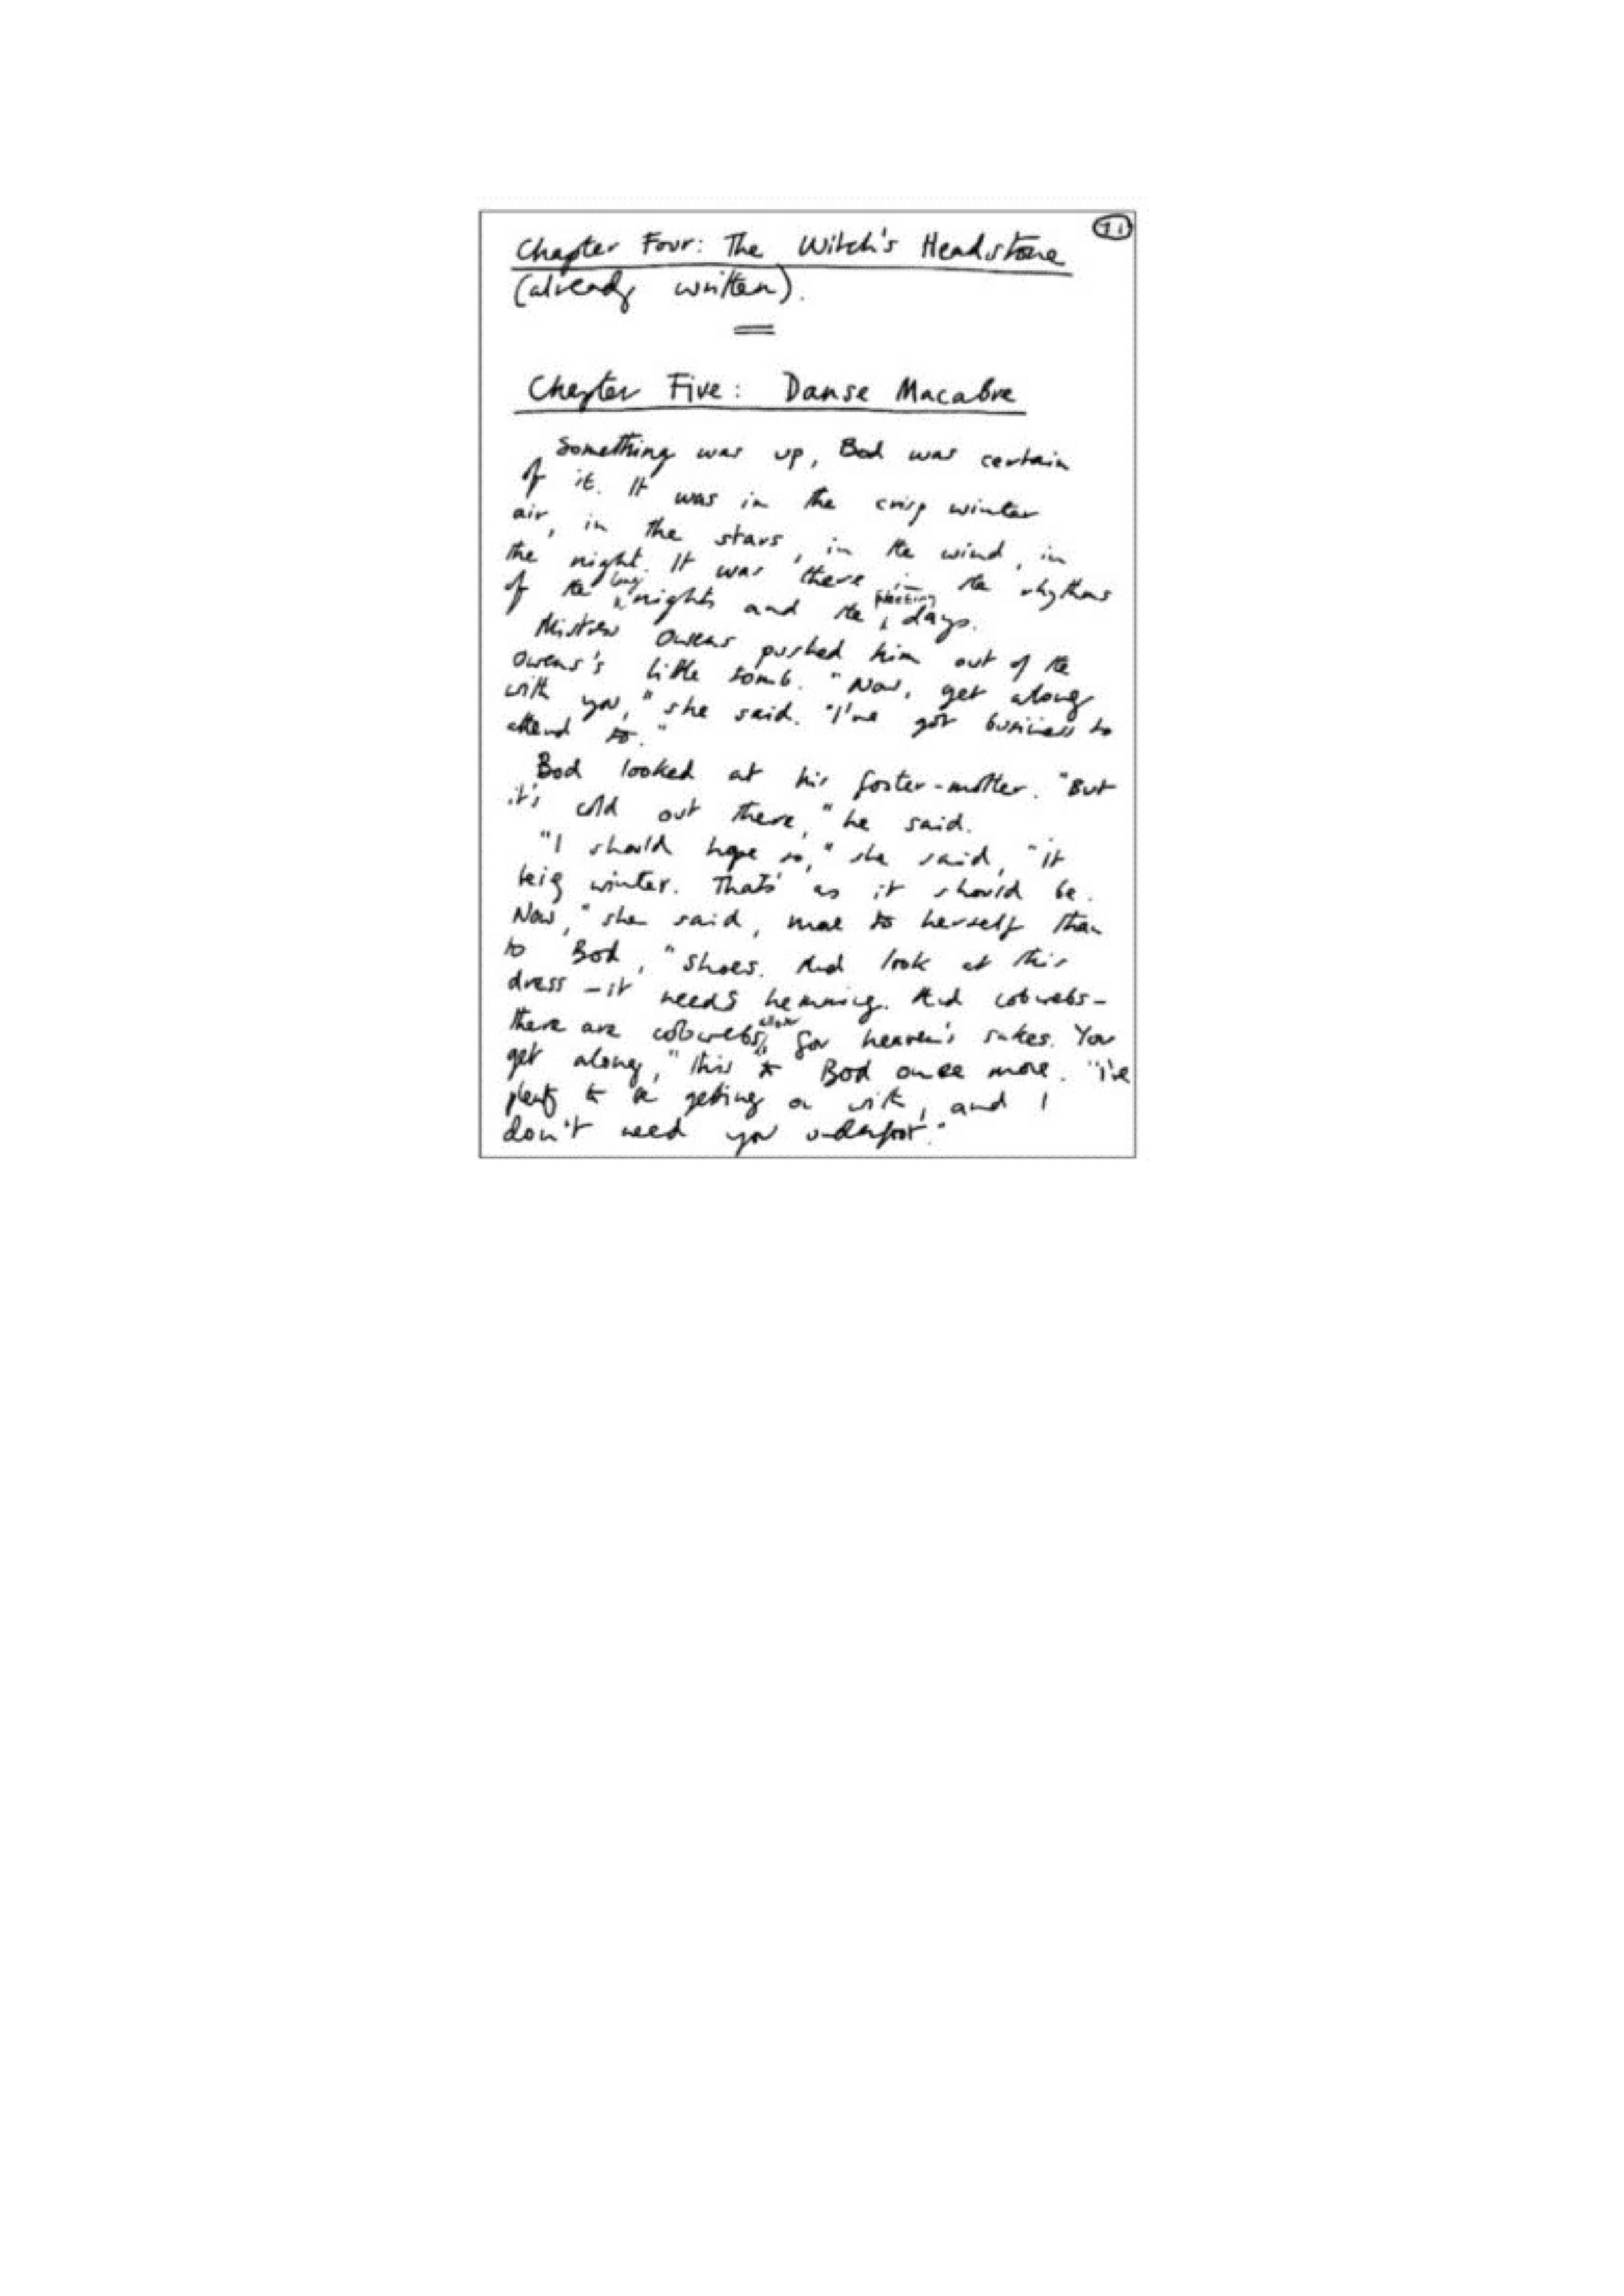 Chapter Four: The Witch's Headstone
(already written).
Chapter Five: Danse Macabre
Something was up, Bod was certain
of it. It was in the crisp winter
air, in the stars, in the wind, in
the night. It was there in the rhythms
of the long nights and the fleeting days.
Mistress Owens pushed him out of the
Owens's little tomb. "Now, get along
with you," she said. "I've got business to
attend to."
Bod looked at his foster-mother. "But
it's cold out there," he said.
"I should hope so," she said, "it
being winter. That's as it should be.
Now," she said, more to herself than
to Bod, "Shoes. And look at this
dress – it needs hemming. And cobwebs –
there are cobwebs all over for heaven's sakes. You
get along," this to Bod once more. "I've
plenty to be getting on with, and I
don't need you underfoot."